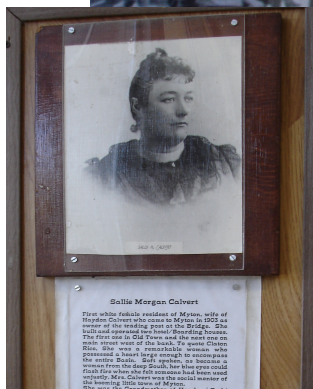 Sallie Morgan Calvert
First white female resident of Myton, wife of
Hayden Calvert who came to Myton in 1903 as
owner of the trading post at the Bridge. She
built and operated two hotel/Boarding houses.
The first one in Old Town and the next one on
main street west of the bank. To quote Clinton
Rice, She was a remarkable woman who
possessed a heart large enough to encompass
the entire Basin. Soft spoken, as became a
woman from the deep South, her blue eyes could
flash fire when she felt someone had been used
unjustly. Mrs. Calvert was the social mentor of
the booming little town of Myton.
She was the Grandmother